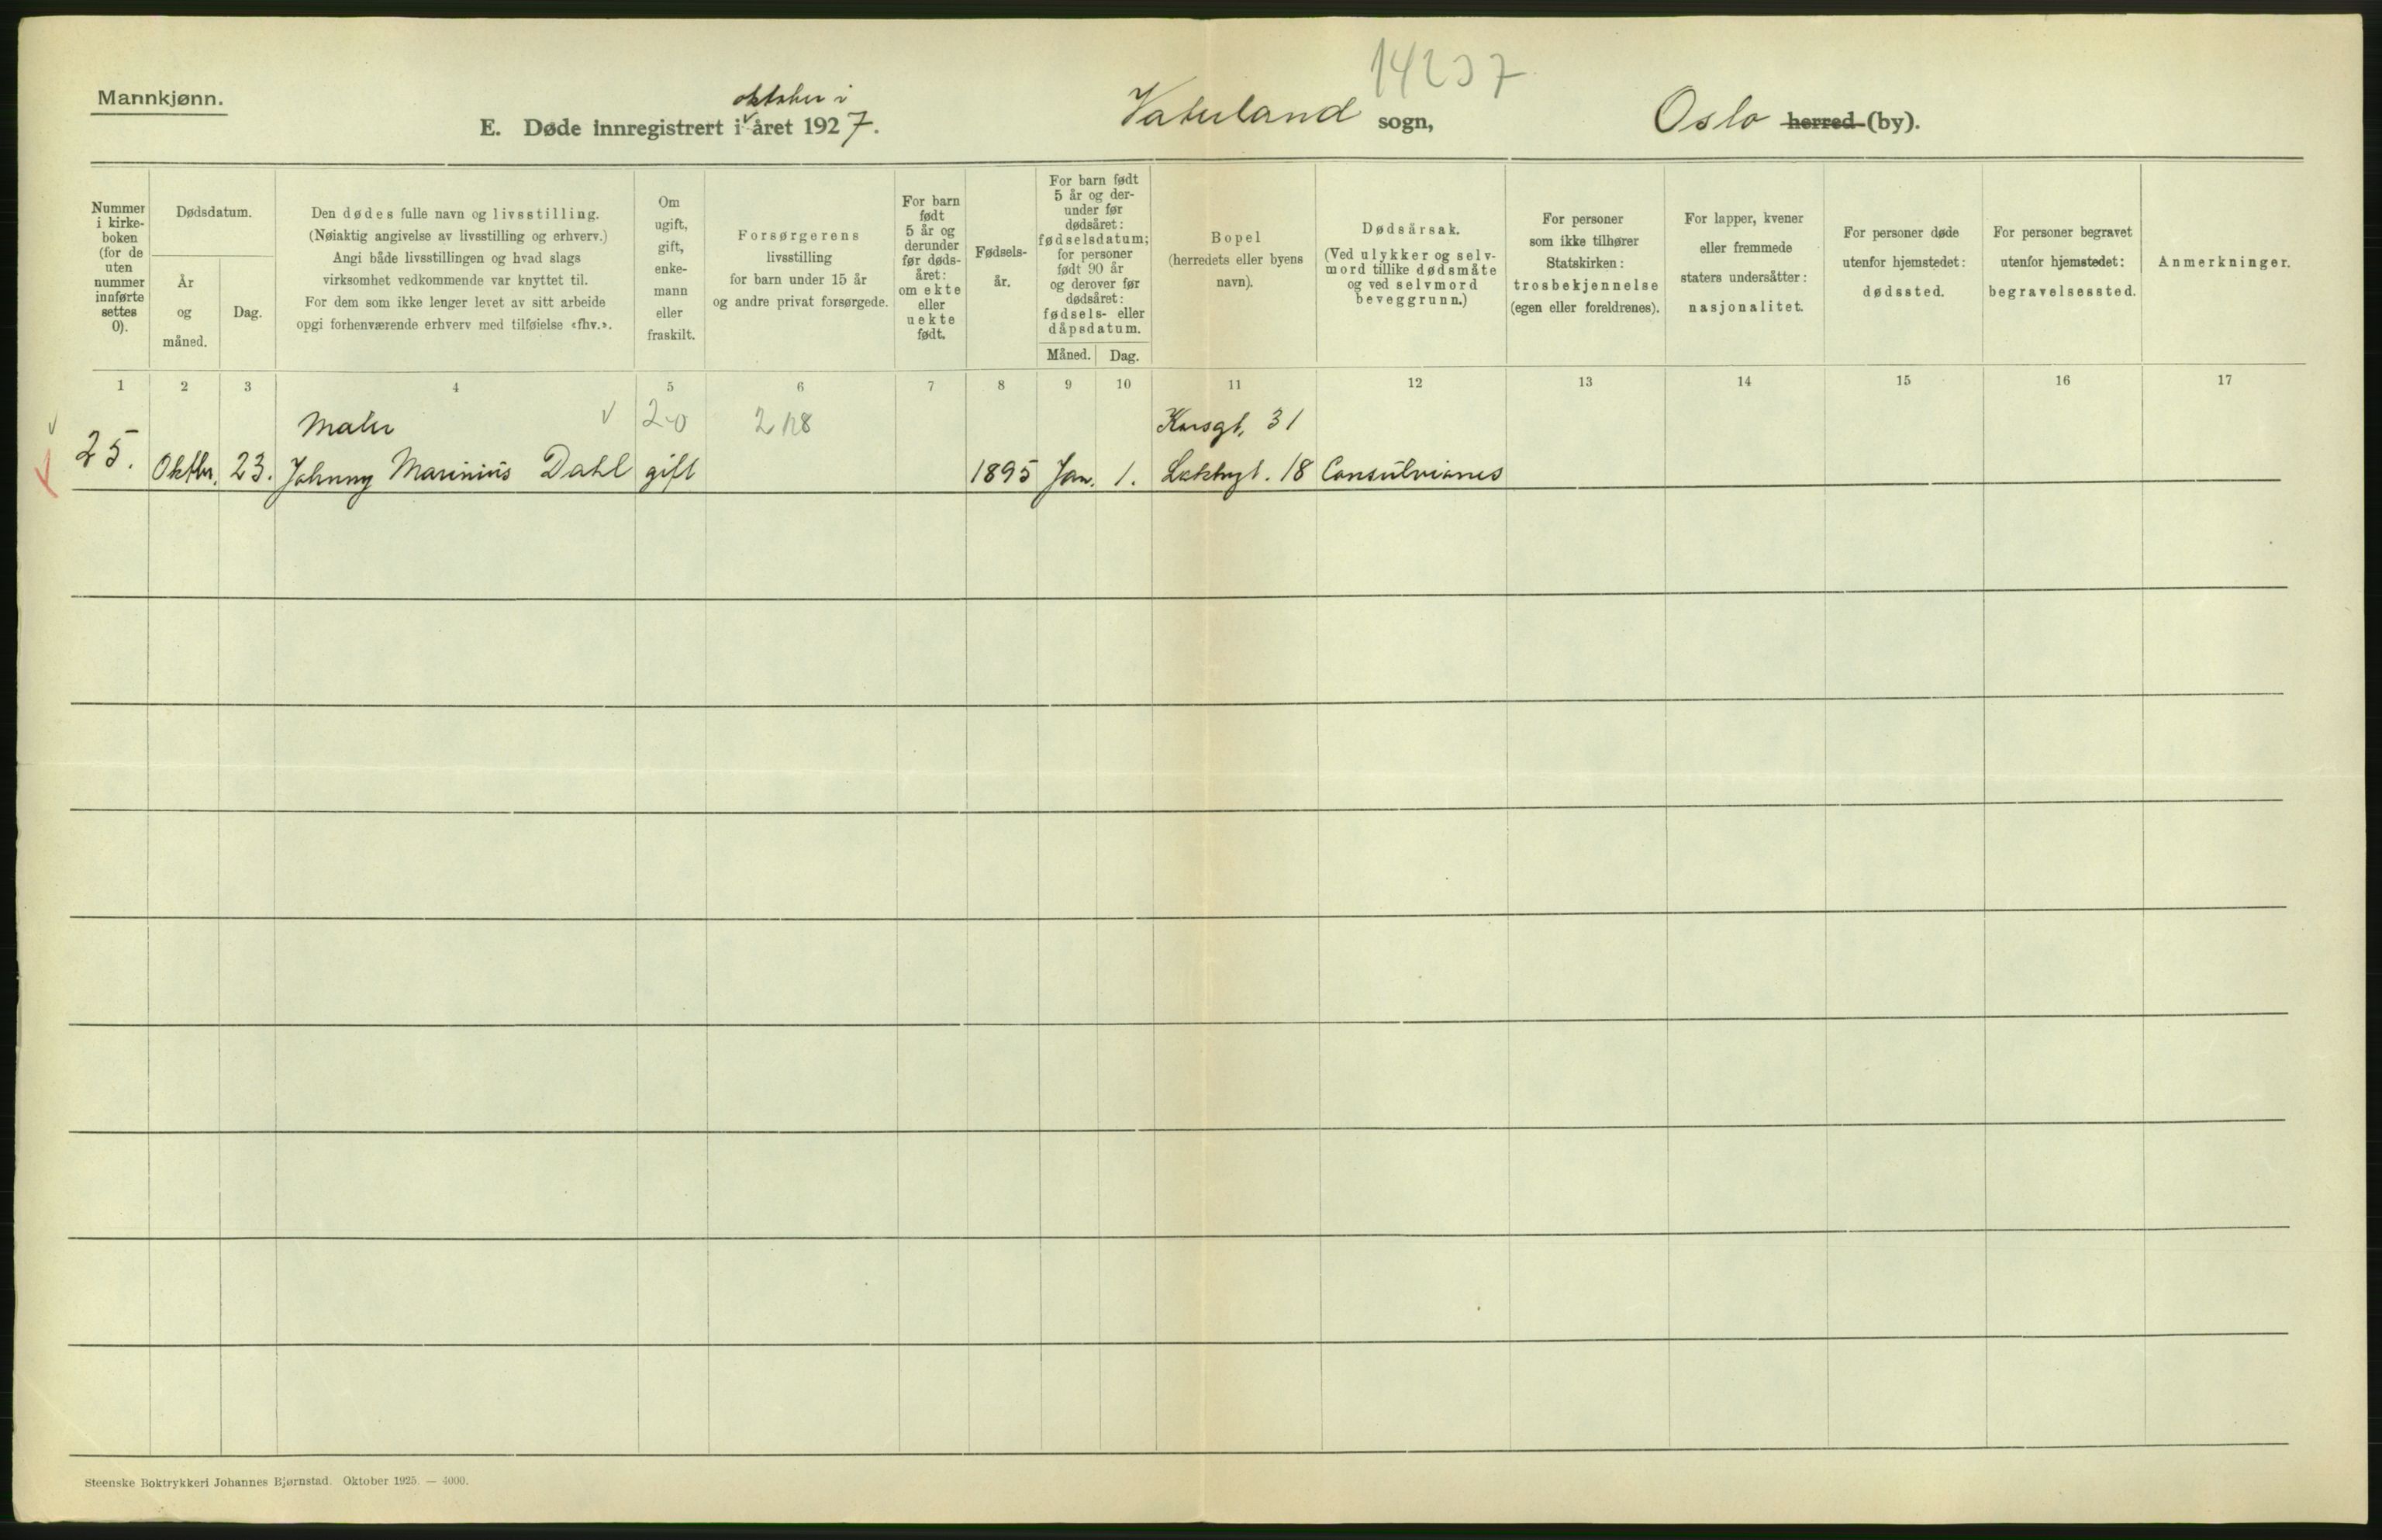 14237
Mannkjønn.
oktober i
E. Døde innregistrert i året 1927. Vaterland sogn, Oslo herred (by).
Nummer i kirke-boken (for de uten nummer innførte settes 0).
Dødsdatum.
År og måned.
Dag.
Den dødes fulle navn og livsstilling.
(Nøiaktig angivelse av livsstilling og erhverv.)
Angi både livsstillingen og hvad slags
virksomhet vedkommende var knyttet til.
For dem som ikke lenger levet av sitt arbeide
opgi forhenværende erhverv med tilføielse «fhv.».
Om ugift, gift, enke-mann eller fraskilt.
Forsørgerens
livsstilling
for barn under 15 år
og andre privat forsørgede.
For barn født 5 år og derunder før døds-året: om ekte eller uekte født.
Fødsels-år.
For barn født 5 år og der-under før dødsåret: fødselsdatum; for personer født 90 år og derover før dødsåret: fødsels- eller dåpsdatum.
Måned. Dag.
Bopel
(herredets eller byens
navn).
Dødsårsak.
(Ved ulykker og selv-mord tillike dødsmåte og ved selvmord beveggrunn.)
For personer
som ikke tilhører
Statskirken:
trosbekjennelse
(egen eller foreldrenes).
For lapper, kvener
eller fremmede
staters undersåtter:
nasjonalitet.
For personer døde
utenfor hjemstedet:
dødssted.
For personer begravet
utenfor hjemstedet:
begravelsessted.
Anmerkninger.
1 2 3 4 5 6 7 8 9 10 11 12 13 14 15 16 17
Maler 20 218 Korsgt. 31
25. Oktbr. 23. Johnny Marinius Dahl gift 1895 Jan. 1. 18
Steenske Boktrykkeri Johannes Bjørnstad. Oktober 1925. — 4000.